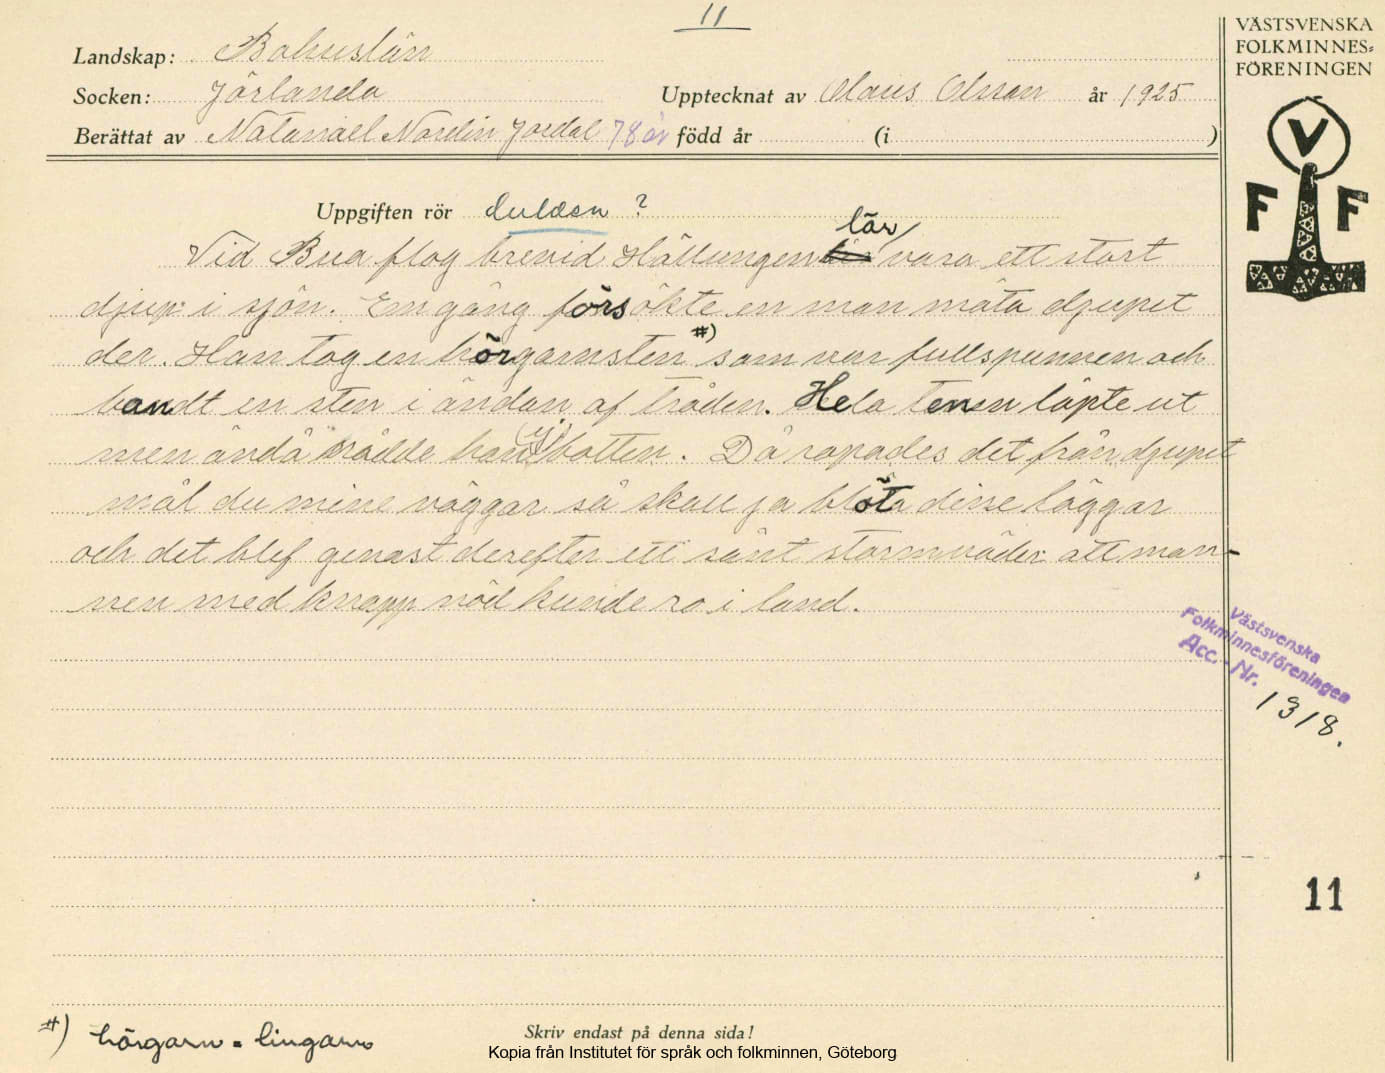 11
Landskap: Bohuslän
Socken: Jörlanda
Upptecknat av Olaus Olsson år 1925
Berättat av Natanael Nordin Jordal 78 år född år (i )
VÄSTSVENSKA
FOLKMINNES=
FÖRENINGEN
V
F F
Uppgiften rör dulden ?
Vid Bua flog brevid Hällungen lär vara ett stort
djup i sjön. Em gång försökte en man mäta djupet
der. Han tog en hörgarnsten #) som var fullspunnen och
bandt en sten i ändan af tråden. Hela tenen löpte ut
men ändå nådde han ej botten. Då ropades det från djupet
mäl du mine väggar så skall ja blöta dine läggar
och det blef genast derefter ett sånt stormväder att man-
nen med knapp nöd kunde ro i land.
Västsvenska
Folkminnesföreningen
Acc. - Nr. 1318.
11
#) hörgarn = lingarn
Skriv endast på denna sida!
Kopia från Institutet för språk och folkminnen, Göteborg